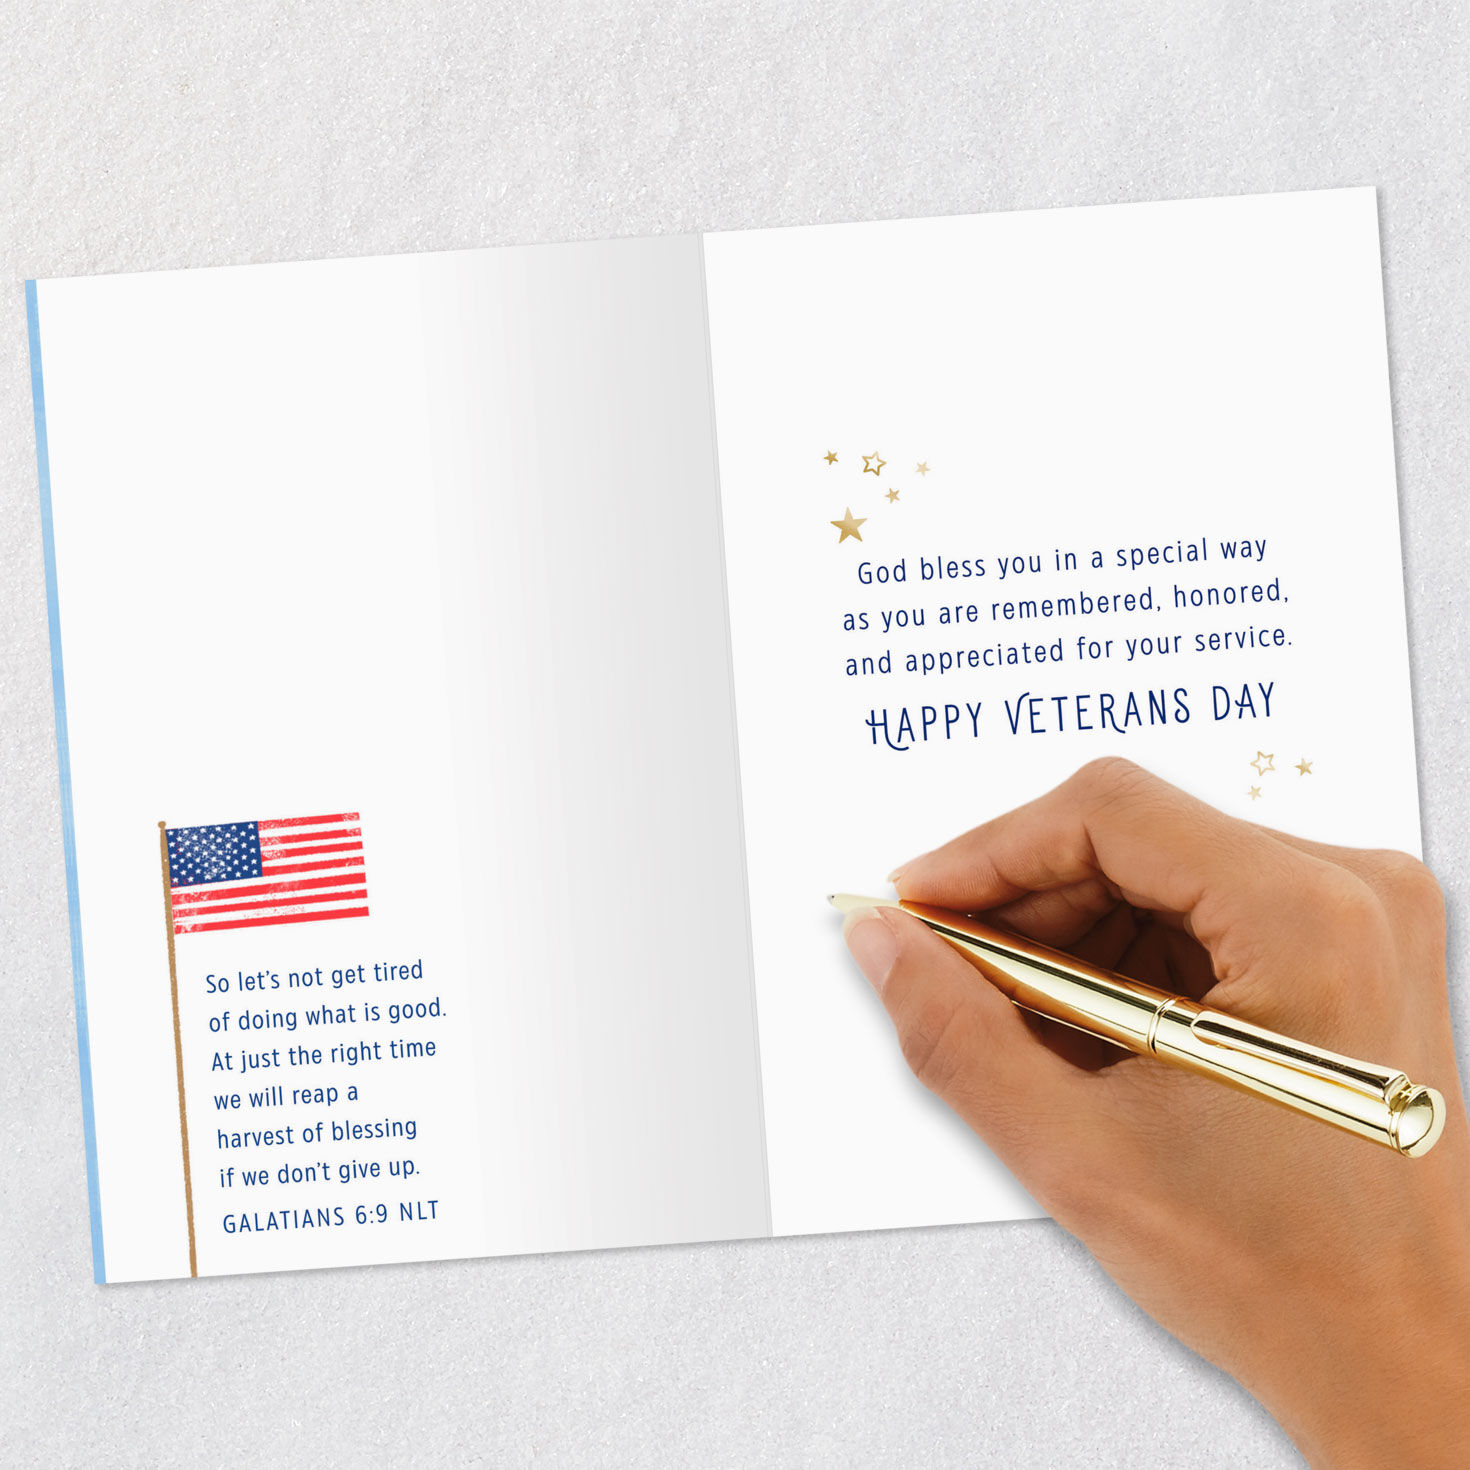 So let's not get tired
of doing what is good.
At just the right time
we will reap a
harvest of blessing
if we don't give up.
GALATIANS 6:9 NLT
God bless you in a special way
as you are remembered, honored,
and appreciated for your service.
HAPPY VETERANS DAY